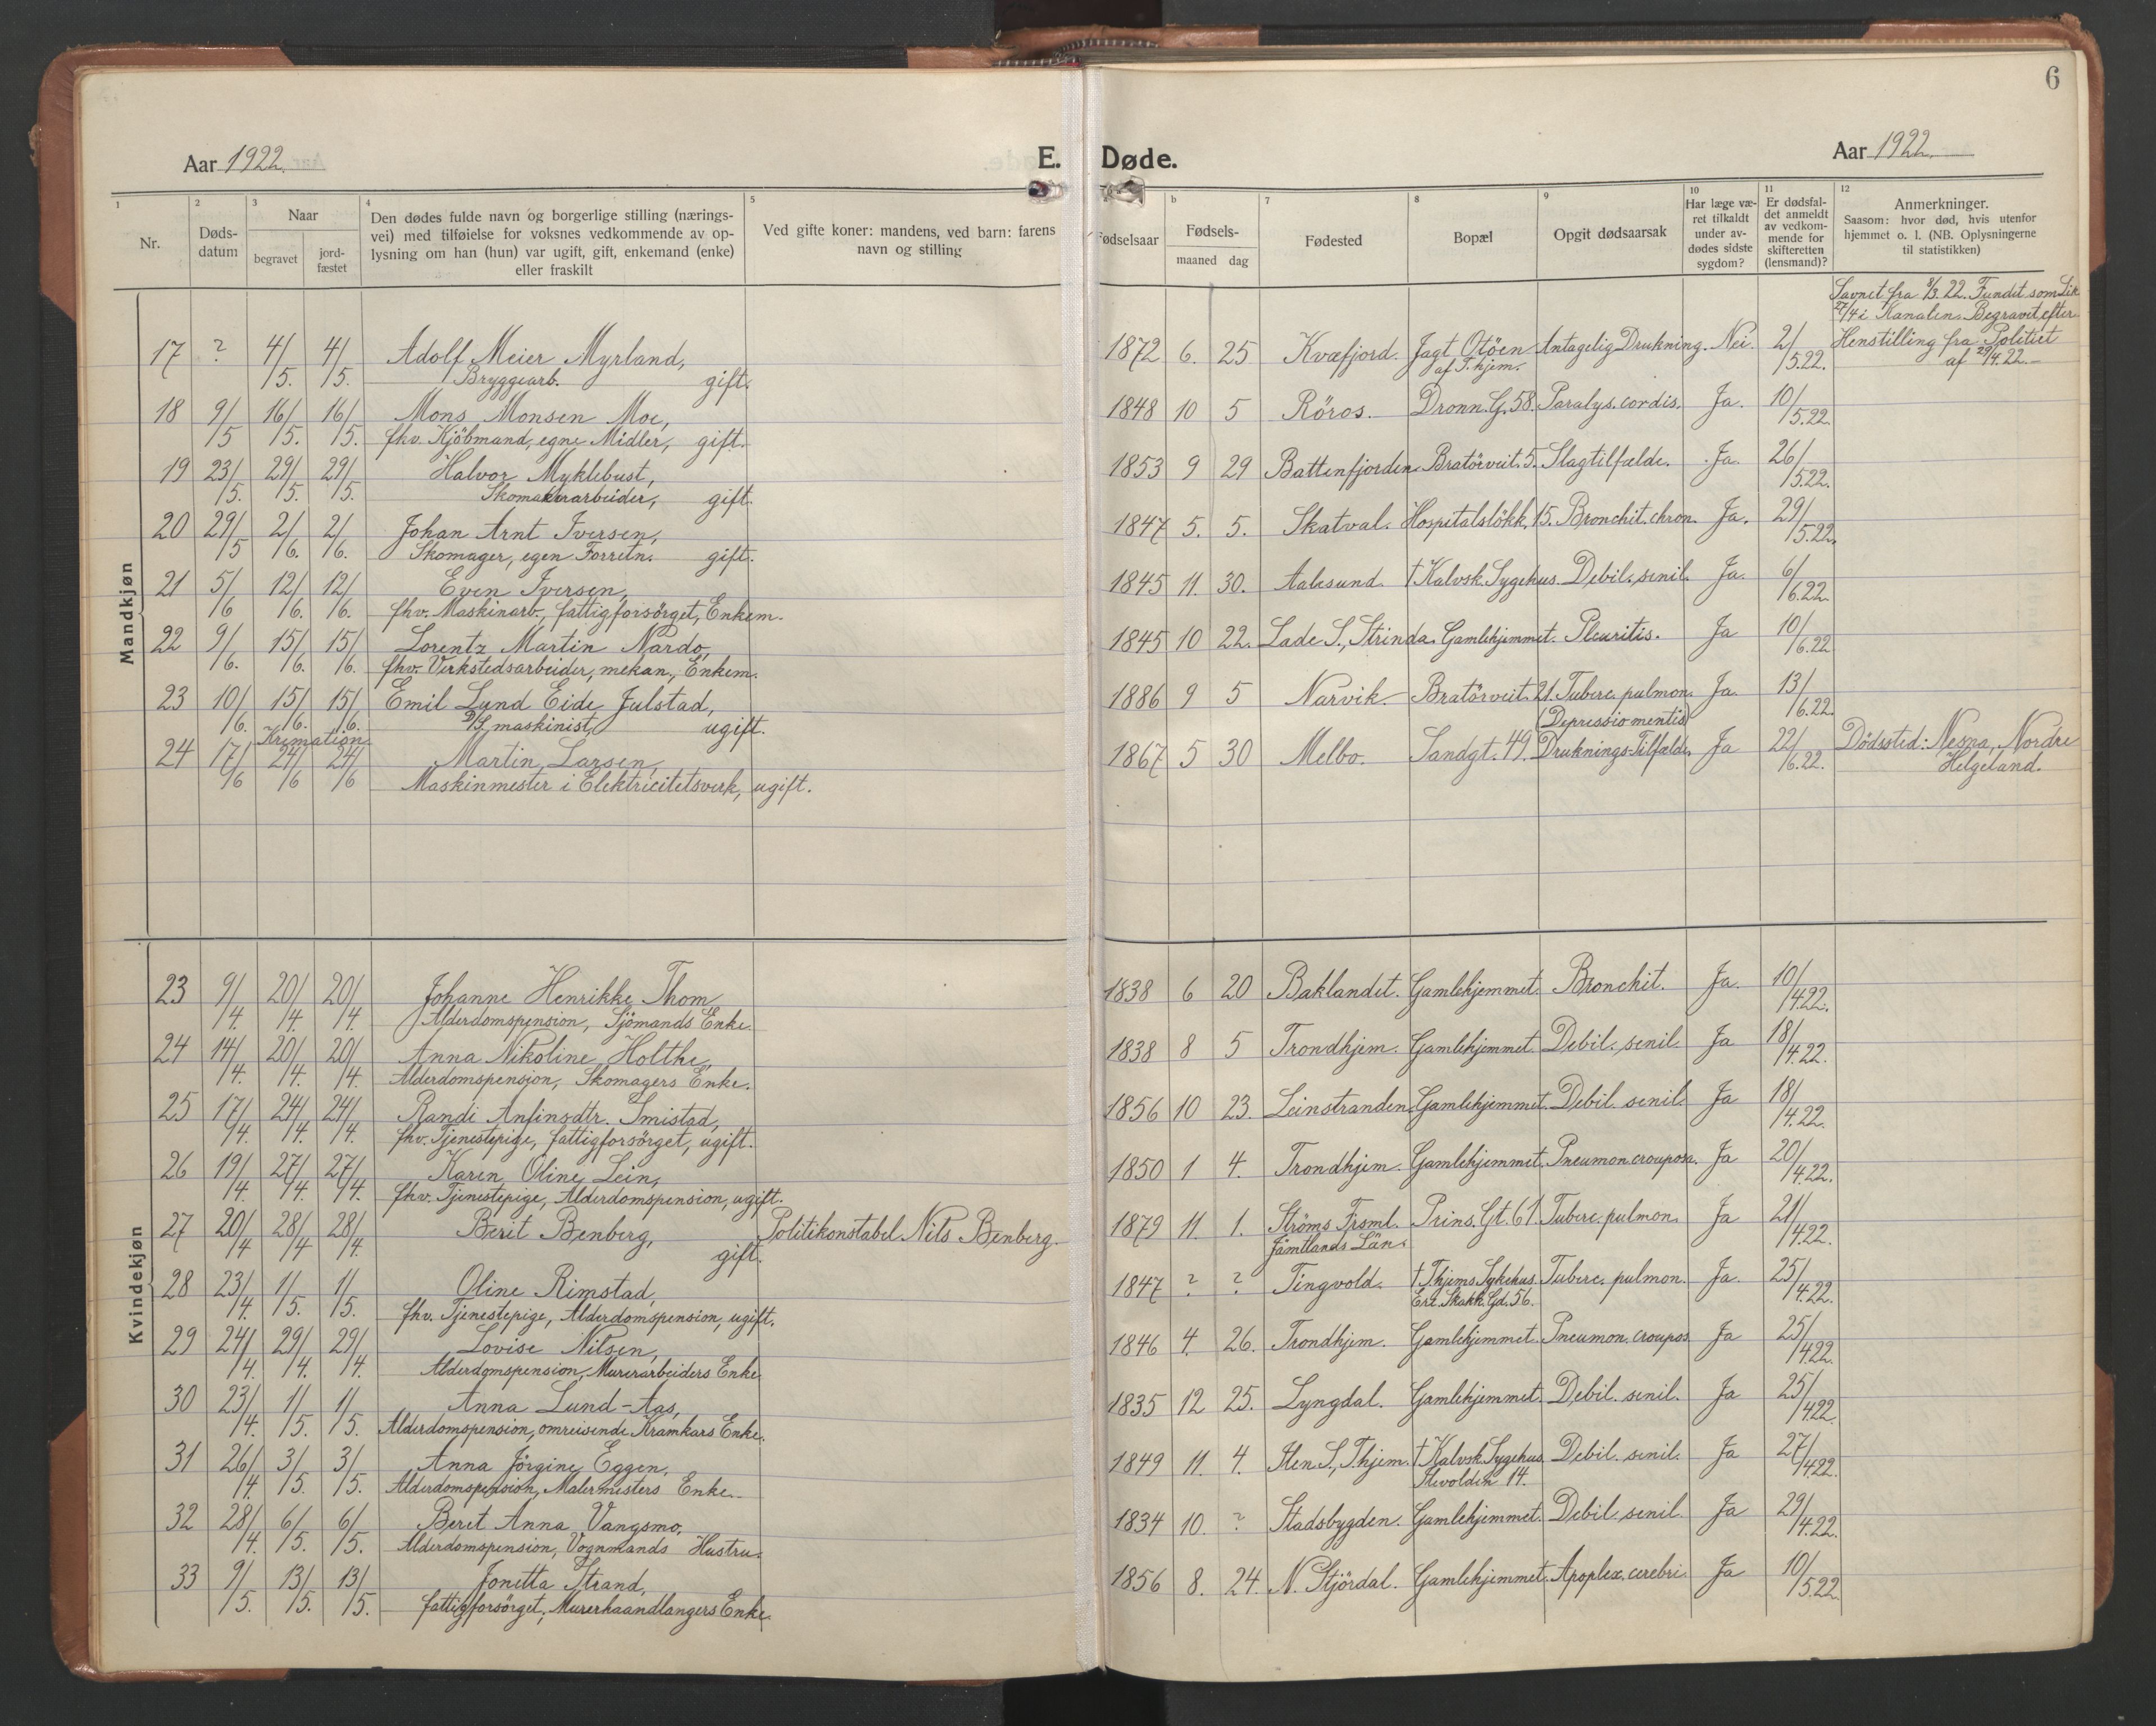 6
Aar 1922.
E. Døde.
Aar 1922.
1 2 3 4 5 b 7 8 9 10 11 12
Nr.
Døds-
datum
Naar
begravet
jord-
fæstet
Den dødes fulde navn og borgerlige stilling (nærings-
vei) med tilføielse for voksnes vedkommende av op-
lysning om han (hun) var ugift, gift, enkemand (enke)
eller fraskilt
Ved gifte koner: mandens, ved barn: farens
navn og stilling
Fødselsaar
Fødsels-
maaned dag
Fødested
Bopæl
Opgit dødsaarsak
Har læge væ-
ret tilkaldt
under av-
dødes sidste
sygdom?
Er dødsfal-
det anmeldt
av vedkom-
mende for
skifteretten
(lensmand)?
Anmerkninger.
Saasom: hvor død, hvis utenfor
hjemmet o. l. (NB. Oplysningerne
til statistikken)
Mandkjøn
Savnet fra 8/3. 22. Fundet som Lik
27/4 i Kanalen. Begravet efter
17 ? 4/5. 4/5. Adolf Meier Myrland, 1872 6. 25 Kvæfjord. Jagt Otöen Antagelig Drukning. Nei. 2/5.22. Henstilling fra Politiet
Bryggearb. gift. af T.hjem. af 29/4. 22.
18 9/5 16/5. 16/5. Mons Monsen Moe, 1848 10 5 Röros. Dronn. G. 58. Paralys. cordis. Ja. 10/5.22.
fhv. Kjöbmand, egne Midler, gift.
19 23/5. 29/5. 29/5. Halvor Myklebust, 1853 9 29 Battenfjorden. Bratörveit. 5. Slagtilfælde. Ja. 26/5.22.
Skomakerarbeider, gift.
20 29/5 2/6. 2/6. Johan Arnt Iversen, 1847 5. 5. Skatval. Hospitalslökk. 15. Bronchit. chron. Ja. 29/5.22.
Skomager, egen Forretn. gift.
21 5/6 12/6. 12/6. Even Iversen, 1845 11. 30. Aalesund. † Kalvsk. Sygehus. Debil. senil. Ja. 6/6.22.
fhv. Maskinarb., fattigforsörget, Enkem.
22 9/6. 15/6. 15/6. Lorentz Martin Nardo, 1845 10 22. Lade S., Strinda. Gamlehjemmet. Pleuritis. Ja 10/6.22
fhv. Verkstedsarbeider, mekan., Enkem.
23 10/6. 15/6. 15/6. Emil Lund Eide Julstad, 1886 9 5 Narvik. Bratörveit. 21. Tuberc. pulmon. Ja. 13/6.22.
D/S maskinist, ugift.
Kremation. (Depressio mentis)
24 17/6 24/6 24/6 Martin Larsen, 1867 5 30 Melbo. Sandgt. 49. Druknings-Tilfælde. Ja 22/6.22. Dödssted: Nesna, Nordre
Maskinmester i Elektricitetsverk, ugift. Helgeland.
Kvindekjøn
23 9/4. 20/4. 20/4. Johanne Henrikke Thom, 1838 6 20 Baklandet. Gamlehjemmet. Bronchit. Ja. 10/4.22.
Alderdomspension, Sjömands Enke.
24 14/4. 20/4. 20/4. Anna Nikoline Holthe, 1838 8 5 Trondhjem. Gamlehjemmet. Debil. senil. Ja 18/4.22.
Alderdomspension, Skomagers Enke.
25 17/4. 24/4. 24/4. Randi Anfinsdtr. Smistad, 1856 10 23. Leinstranden. Gamlehjemmet. Debil. senil. Ja 18/4.22.
fhv. Tjenestepige, fattigforsörget, ugift.
26 19/4. 27/4. 27/4. Karen Oline Lein, 1850 1 4. Trondhjem. Gamlehjemmet. Pneumon. croupos. Ja 20/4.22.
fhv. Tjenestepige, Alderdomspension, ugift.
27 20/4 28/4 28/4. Berit Benberg, Politikonstabel Nils Benberg. 1879 11. 1. Ströms Frsml. Prins. Gt. 61. Tuberc. pulmon. Ja 21/4.22.
gift. Jämtlands Län.
28 23/4. 1/5. 1/5. Oline Rimstad, 1847 ? ? Tingvold. † T.hjems Sykehus. Tuberc. pulmon. Ja. 25/4.22.
fhv. Tjenestepige, Alderdomspension, ugift. Erl. Skakk. Gd. 56.
29 24/4. 29/4. 29/4. Lovise Nilsen, 1846 4. 26. Trondhjem. Gamlehjemmet. Pneumon. croupos. Ja 25/4.22.
Alderdomspension, Murerarbeiders Enke.
30 23/4. 1/5. 1/5. Anna Lund-Aas, 1835 12 25. Lyngdal. Gamlehjemmet. Debil. senil. Ja 25/4.22.
Alderdomspension, omreisende Kramkars Enke.
31 26/4. 3/5. 3/5. Anna Jörgine Eggen, 1849 11. 4. Ilen S., T.hjem. † Kalvsk. Sygehus. Debil. senil. Ja 27/4.22.
Alderdomspension, Malermesters Enke. Ilevolden 14.
32 28/4. 6/5. 6/5. Beret Anna Vangsmo, 1834 10. ? Stadsbygden. Gamlehjemmet. Debil. senil. Ja 29/4.22.
Alderdomspension, Vognmands Hustru.
33 9/5. 13/5. 13/5. Jonetta Strand, 1856 8. 24. N. Stjördal. Gamlehjemmet. Apoplex. cerebri. Ja 10/5.22.
fattigforsörget, Murerhaandlangers Enke.